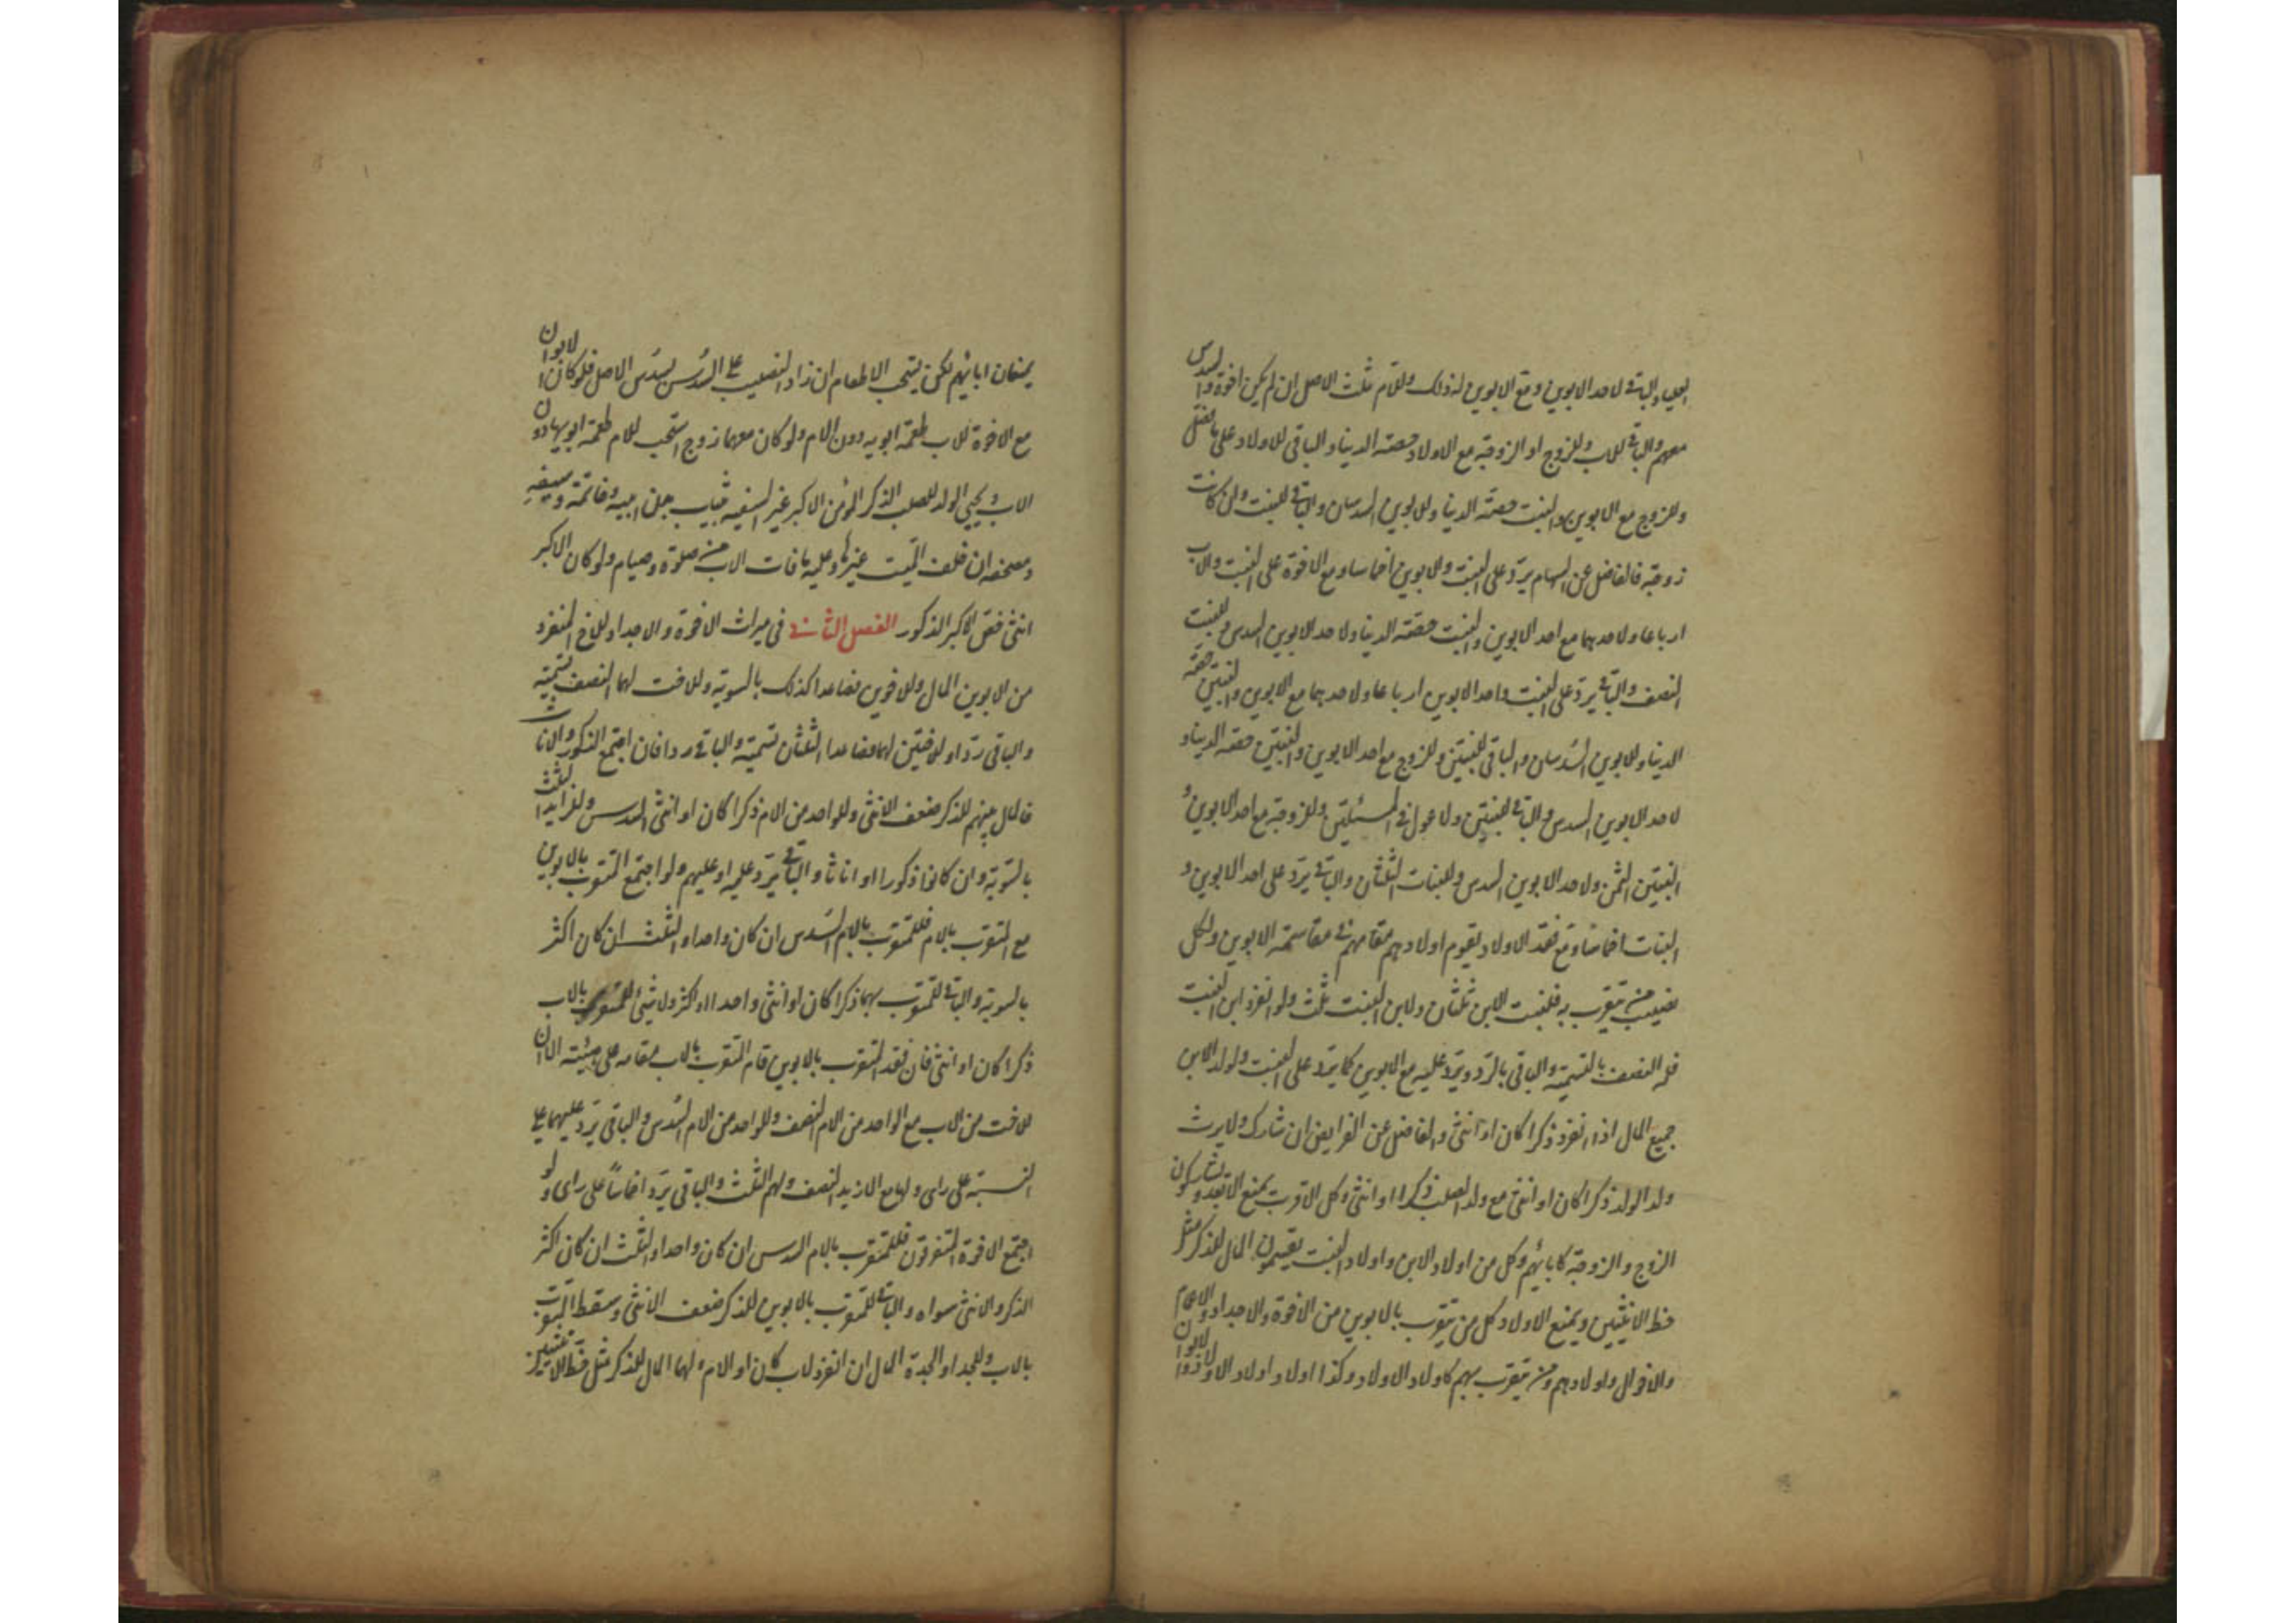 العليا والباقي لاحد الابوين ومع الابوين له ذلك وللام ثلث الاصل ان لم يكن اخوة والسدس
معهم والباقي للاب وللزوج او الزوجة مع الاولاد حصته الدنيا والباقي للاولاد على
وللزوج مع الابوين والبنت حصته الدنيا وللابوين السدسان والباقي للبنت ولو كانت
زوجة فالفاضل عن السهام يرد على البنت والابوين اخماسا ومع الاخوة على البنت والاب
ارباعا ولاحدهما مع احد الابوين والبنت حصته الدنيا ولاحد الابوين السدس وللبنت
النصف والباقي يرد على البنت واحد الابوين ارباعا ولاحدهما مع الابوين والبنتين حصته
الدنيا وللابوين السدسان والباقي للبنتين وللزوج مع احد الابوين والبنتين حصته الدنيا و
لاحد الابوين السدس والباقي للبنتين ولا عول في المسئلتين وللزوجة مع احد الابوين و
البنتين الثمن ولاحد الابوين السدس وللبنات الثلثان والباقي يرد على احد الابوين و
البنات اخماسا ومع فقد الاولاد يقوم اولادهم مقامهم في مقاسمة الابوين ولكل
نصيب من يتقرب به فلبنت الابن ثلثان ولابن البنت ثلث ولو انفرد ابن البنت
فله النصف بالتسمية والباقي بالرد ويرد عليه مع الابوين كما يرد على البنت ولولد الابن
جميع المال اذا انفرد ذكرا كان او انثى والفاضل عن الفرايض ان شارك ولا يرث
ولد الولد ذكرا كان او انثى مع ولد الصلب ذكرا او انثى وكل اقرب يمنع الابعد ويشاركون
الزوج والزوجة كابائهم وكل من اولاد الابن واولاد البنت يقسمون المال للذكر مثل
حظ الانثيين ويمنع الاولاد كل من يتقرب بالابوين من الاخوة والاجداد والاعمام
والاخوال واولادهم ومن يتقرب بهم كاولاد الاولاد وكذا اولاد اولاد الاولاد والابوان
يمنعان ابائهم لكن يستحب الاطعام ان زاد النصيب على السدس بسدس الاصل فلو كان الابوان
مع الاخوة للاب طعمة ابويه دون الام ولو كان معهما زوج استحب للام طعمة ابويها دون
الاب ويحبى الولد للصلب الذكر المؤمن الاكبر غير السفيه بثياب جلد ابيه وخاتمه وسيفه
ومصحفه ان خلف الميت غيرها وعليه ما فات الاب من صلوة وصيام ولو كان الاكبر
انثى خص اكبر الذكور الفصل الثاني في ميراث الاخوة والاجداد للاخ المنفرد
من الابوين المال وللاخوين فصاعدا كذلك بالسوية وللاخت لها النصف تسمية
والباقي ردا وللاختين لهما فصاعدا الثلثان تسمية والباقي ردا فان اجتمع الذكور والاناث
فالمال بينهم للذكر ضعف الانثى وللواحد من الام ذكرا كان او انثى السدس وللزايد الثلث
بالسوية وان كانوا ذكورا او اناثا والباقي يرد عليه او عليهم ولو اجتمع المتقرب بالابوين
مع المتقرب بالام فللمتقرب بالام السدس ان كان واحدا والثلث ان كان اكثر
بالسوية والباقي للمتقرب بهما ذكرا كان او انثى واحدا او اكثر ولا شيئ للمتقرب بالاب
ذكرا كان او انثى فان فقد المتقرب بالابوين قام المتقرب بالاب مقامه على هيئته الا ان
للاخت من الاب مع الواحد من الام النصف وللواحد من الام السدس والباقي يرد عليهما على
النسبة على راى ولها مع الازيد النصف ولهم الثلث والباقي يرد اخماسا على راى ولو
اجتمع الاخوة المتفرقون فللمتقرب بالام السدس ان كان واحدا والثلث ان كان اكثر
الذكر والانثى سواء والباقي للمتقرب بالابوين للذكر ضعف الانثى وسقط المتقرب
بالاب وللجد او الجدة المال ان انفرد لاب كان او لام ولهما المال للذكر مثل حظ الانثيين